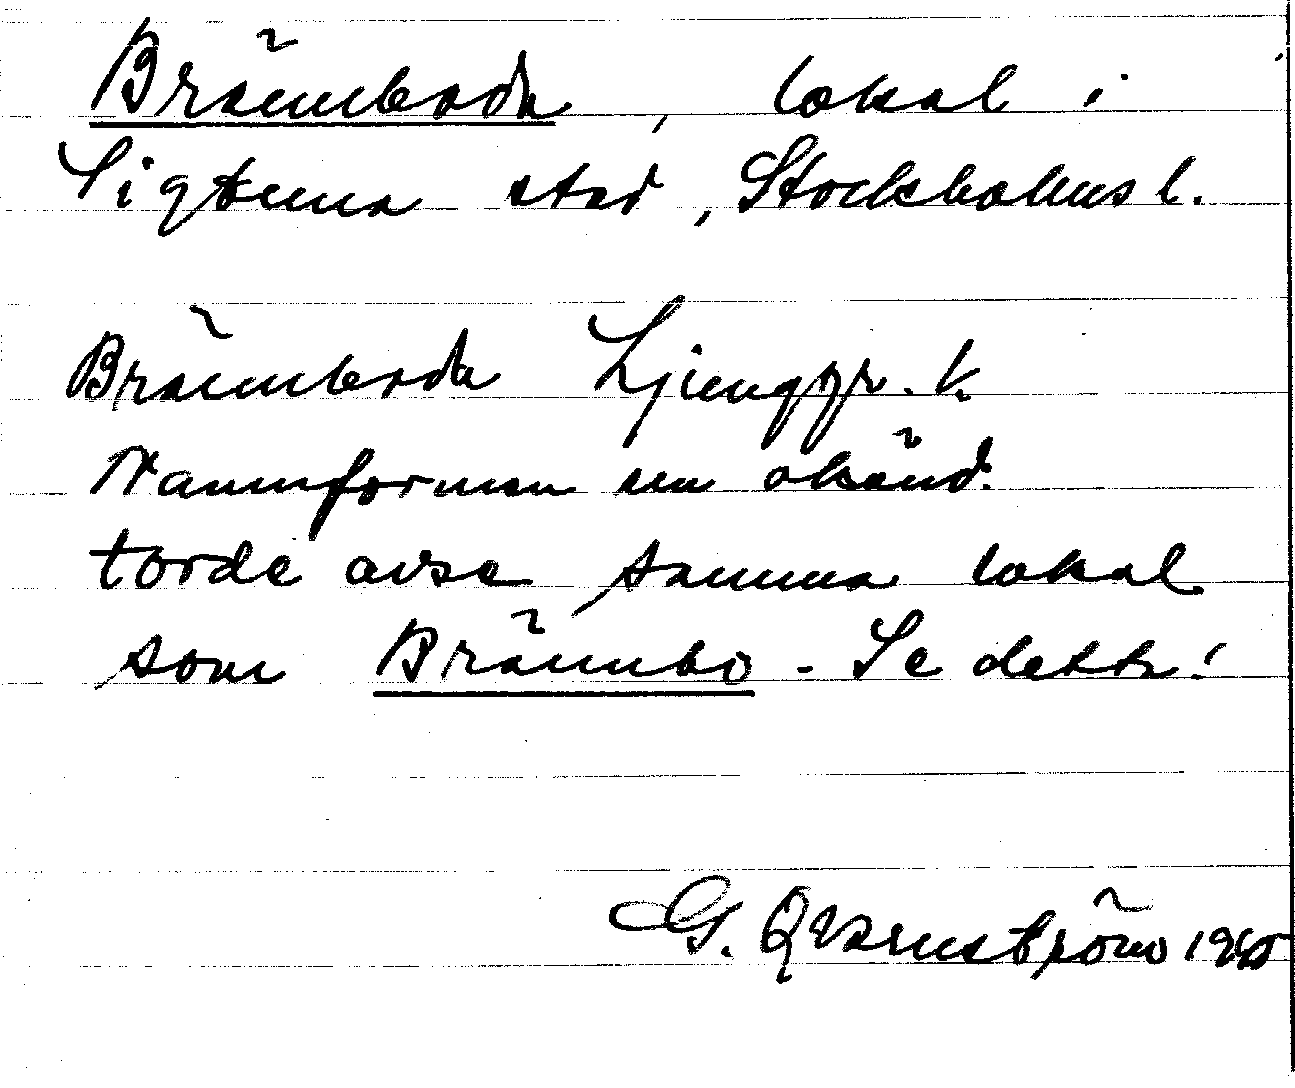 Brännboda, lokal i
Sigtuna stad, Stockholms l.
Brännboda Ljunggr. k.
Namnformen nu okänd.
torde avse samma lokal
som Brännbo - Se detta!
G. Qvarnström 1945